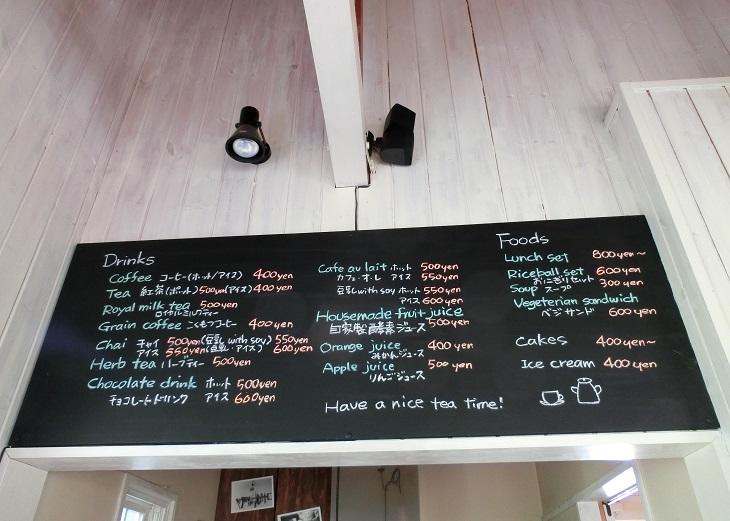 Drinks
Coffee コーヒー(ホット/アイス) 400yen
Tea 紅茶(ホット)500yen(アイス)400yen
Royal milk tea 500yen
ロイヤルミルクティー
Grain coffee こくもつコーヒー 400yen
Chai チャイ 500yen(豆乳 with soy) 550yen
アイス 550yen(豆乳・アイス) 600yen
Herb tea ハーブティー 500yen
Chocolate drink ホット 500yen
チョコレートドリンク アイス 600yen
Cafe au lait ホット 500yen
カフェ・オ・レ アイス 550yen
豆乳 with soy ホット 550yen
アイス 600yen
Housemade fruit juice
自家製酵素ジュース 500yen
Orange juice 400yen
みかんジュース
Apple juice 500yen
りんごジュース
Have a nice tea time!
Foods
Lunch set 800yen~
Riceball set 600yen
おにぎりセット
Soup スープ 300yen
Vegeterian sandwich
ベジサンド 600yen
Cakes 400yen~
Ice cream 400yen